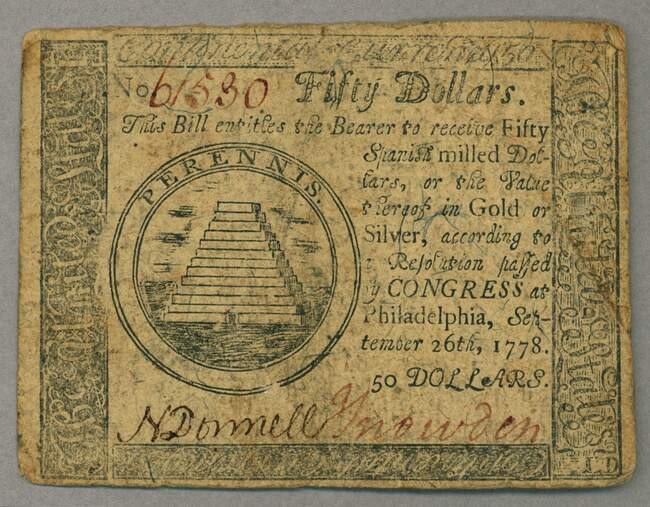 No 61530 Fifty Dollars.
This Bill entitles the Bearer to receive Fifty
Spanish milled Dol-
lars, or the Value
thereof in Gold or
Silver, according to
a Resolution passed
by CONGRESS at
Philadelphia, Sep-
tember 26th, 1778.
50 DOLLARS.
PERENNIS.
N Donnell J Snowden